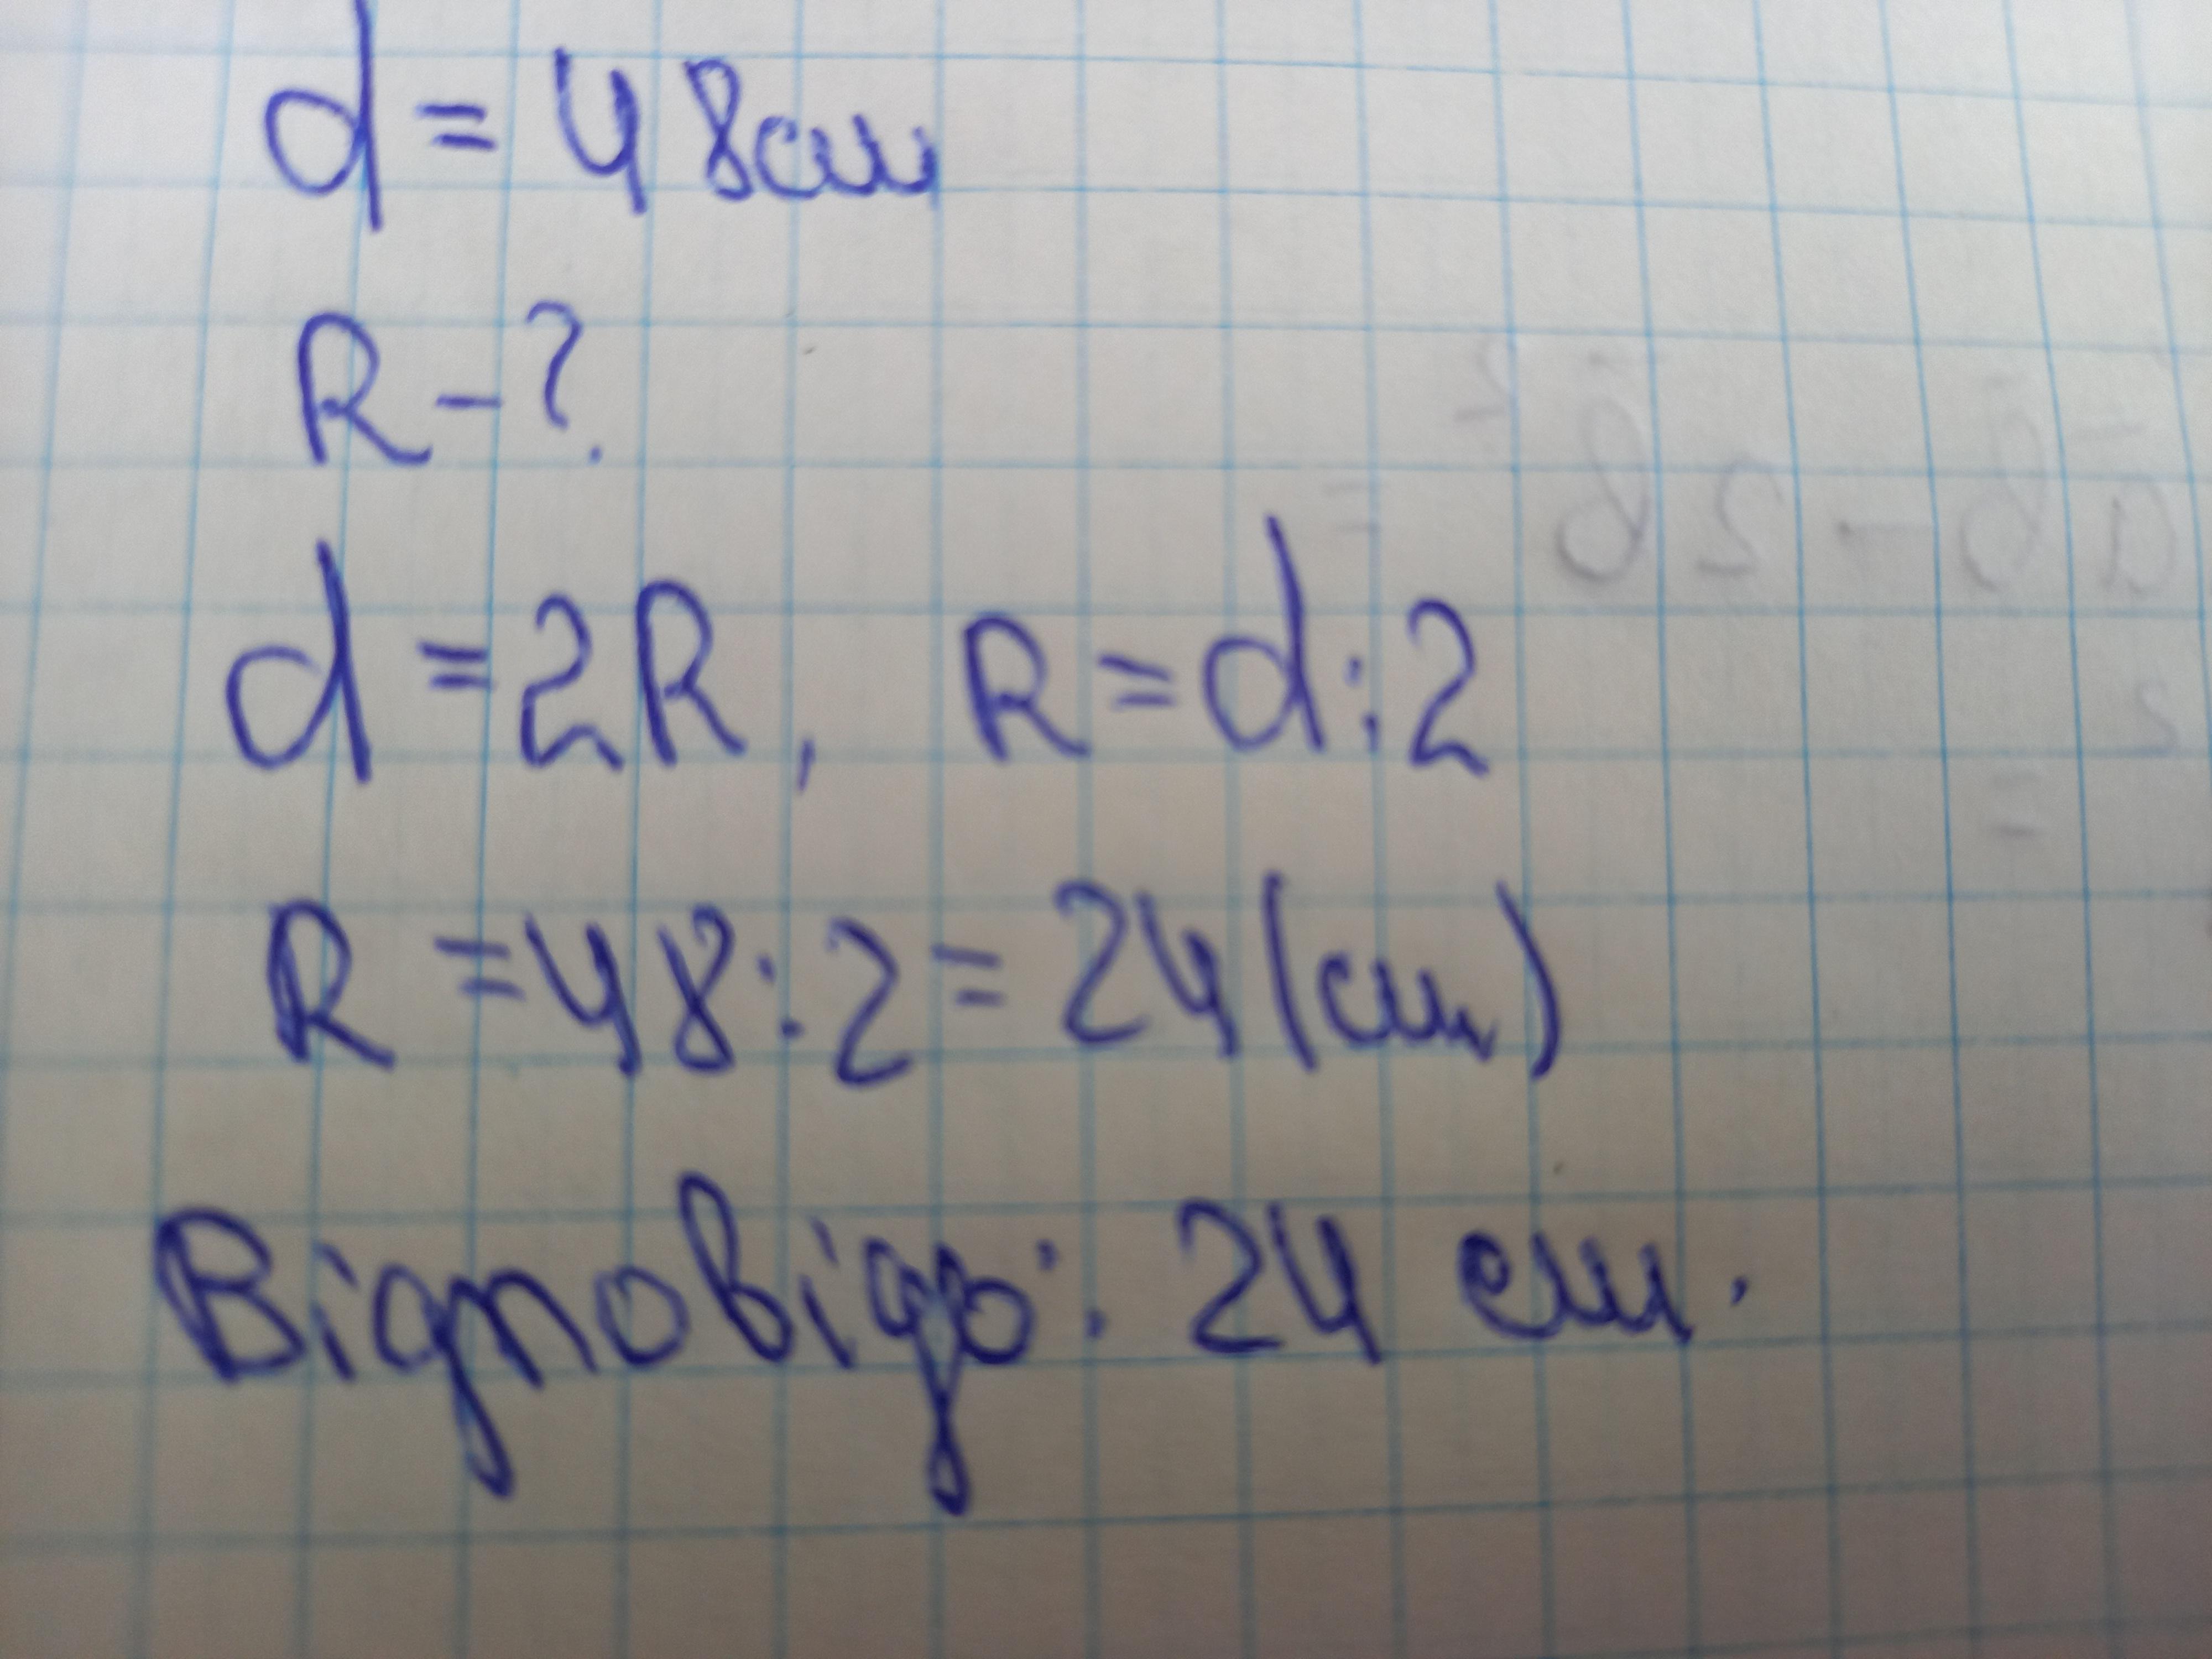 d = 48см
R - ?
d = 2R, R = d : 2
R = 48 : 2 = 24 (см)
Відповідь: 24 см.